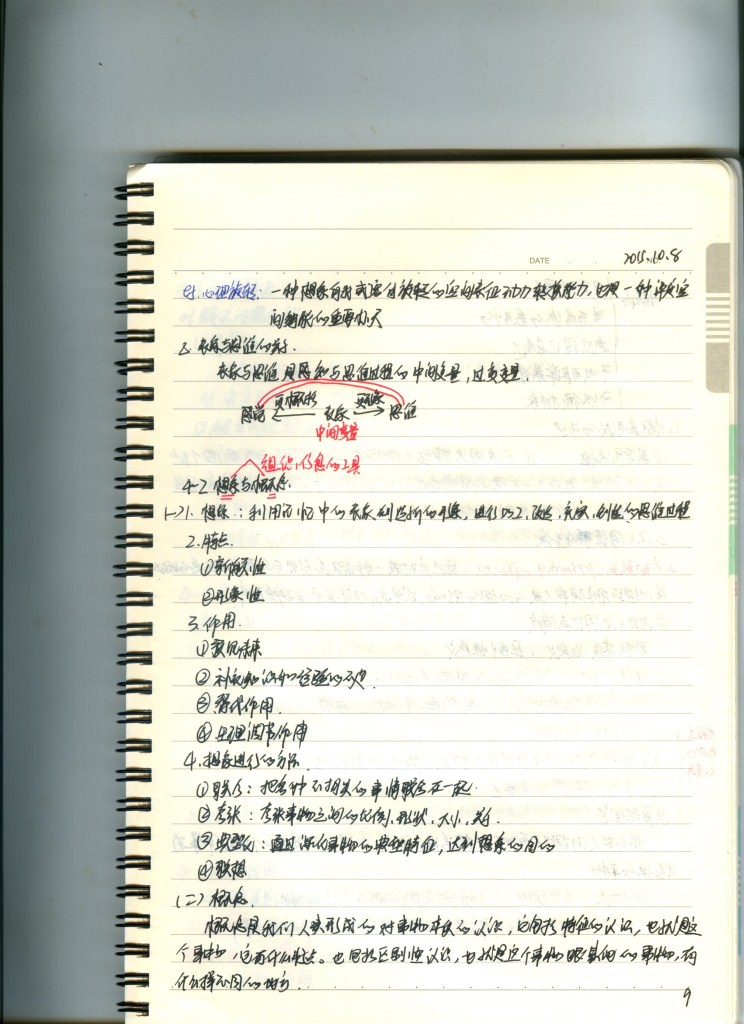 DATE 2015.10.8
心理旋转：一种想象自我或客体旋转的空间表征动力转换能力，也是一种评定空
间智能的重要标尺
3. 表象与思维的关系.
表象与思维是感知与思维过程的中间变量，过负变量.
感知 表象 思维
中间变量
组织的思想的工具
4-2 想象与概念.
(一) 1. 想象：利用记忆中的表象创造新的形象，进行加工，改造，充实，创造的思维过程
2. 特点.
①新颖性
②形象性
3. 作用.
①预见未来
②补充知识和经验的不足.
③替代作用.
④生理调节作用
4. 想象进行的方法.
①联合：把各种不相关的事情联合在一起.
②夸张：夸张事物之间的比例，形状，大小，关系.
③典型化：通过深化事物的典型特征，达到想象的目的
④联想
(二) 概念
概念是我们人类形成的对事物本质的认识，它包括特征的认识，也就是这
个事物，它有什么特点。也包括区别性认识，也就是这个事物跟其他的事物，有
什么样不同的地方.
9